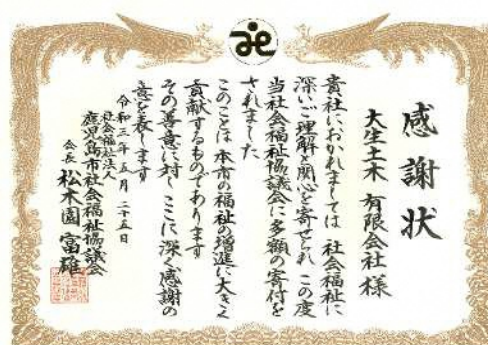 感謝状
大生土木 有限会社 様
貴社におかれましては 社会福祉に
深いご理解と関心を寄せられ この度
当社会福祉協議会に多額の寄付を
されました
このことは 本市の福祉の増進に大きく
貢献するものであります
その善意に対し ここに深く感謝の
意を表します
令和三年五月二十五日
社会福祉法人
鹿児島市社会福祉協議会
会長 松木園 富雄